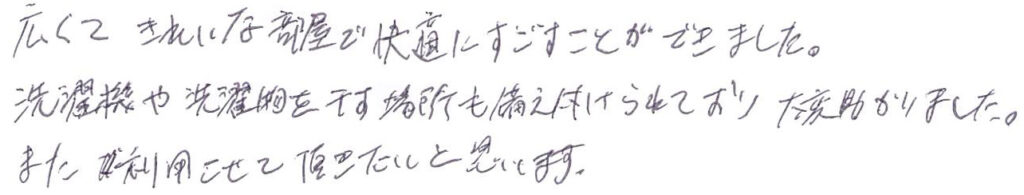 広くて きれいな部屋で快適にすごすことができました。
洗濯機や洗濯物を干す場所も備え付けられており 大変助かりました。
また 利用させて頂きたいと思います。